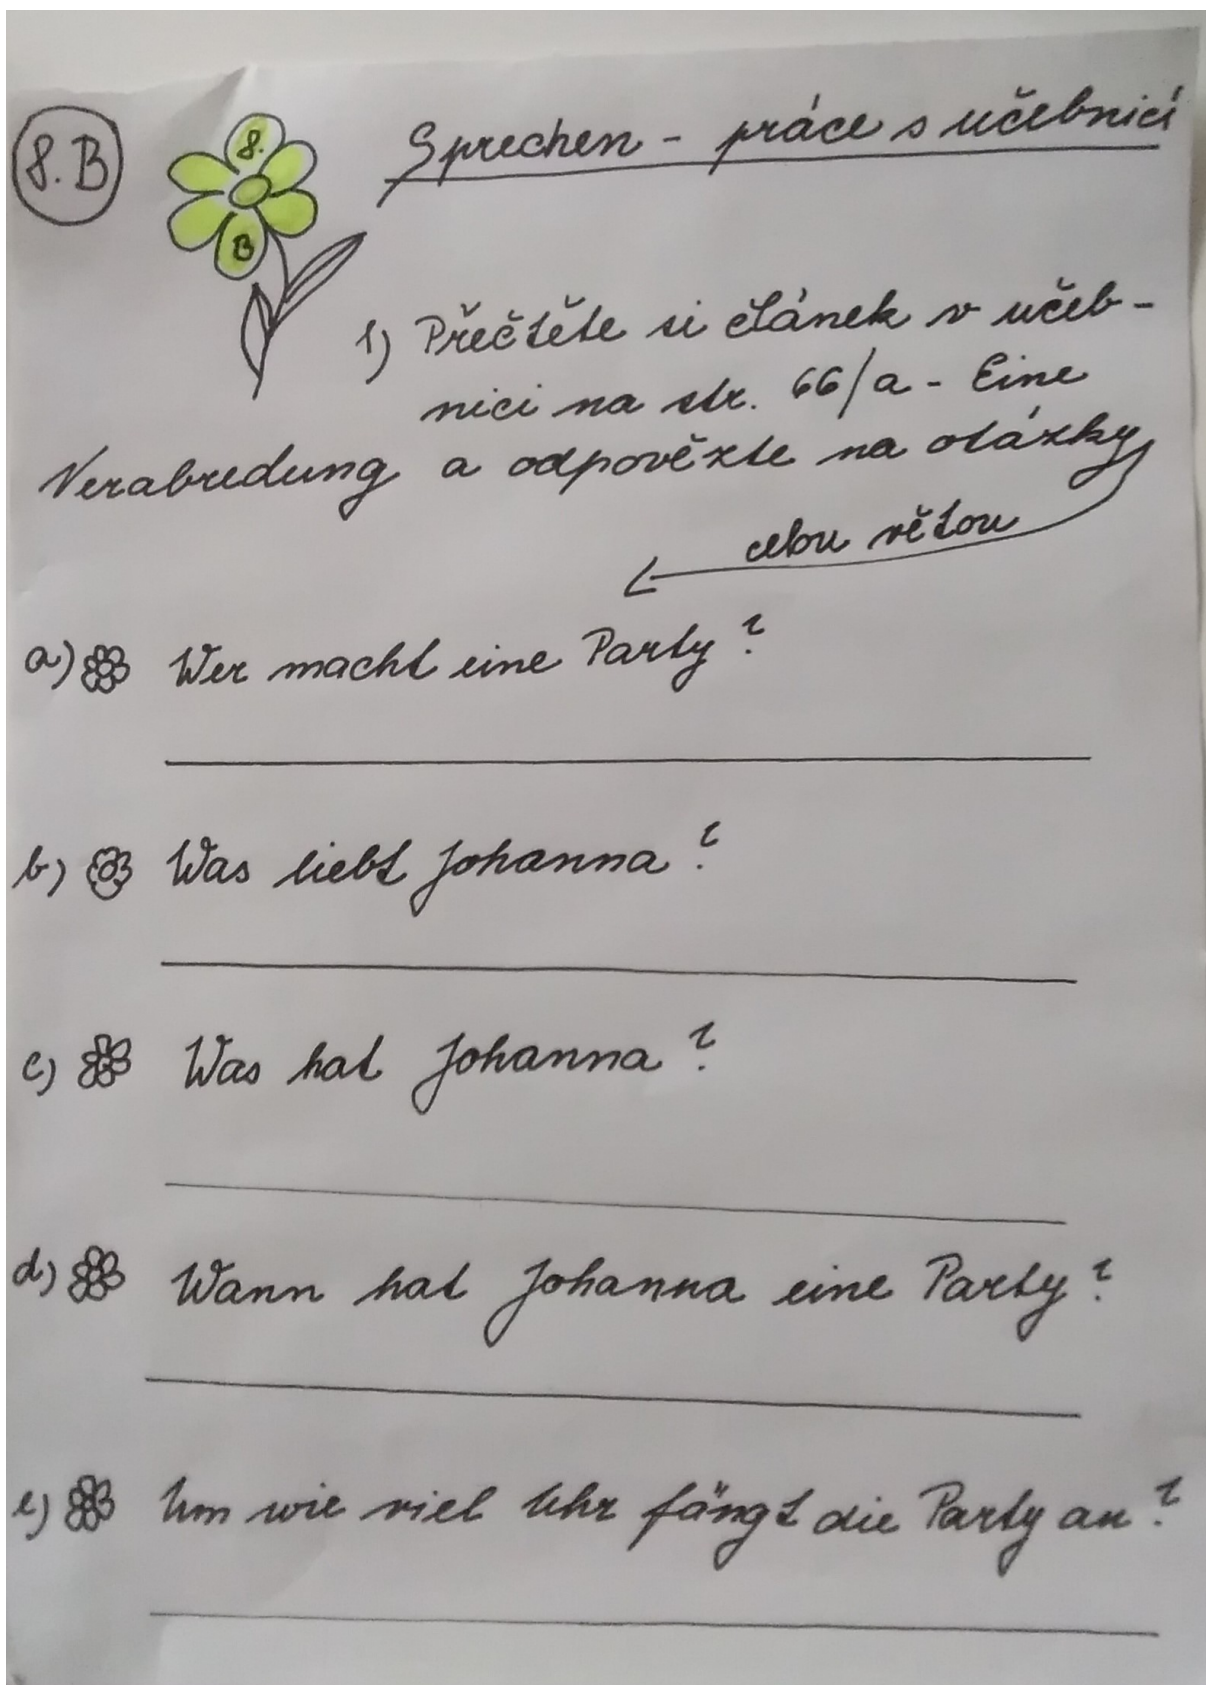 8.B
8.
B
Sprechen - práce s učebnicí
1) Přečtěte si článek v učeb-
nici na str. 66/a - Eine
Verabredung a odpovězte na otázky
celou větou
a) Wer macht eine Party?
b) Was liebt Johanna?
c) Was hat Johanna?
d) Wann hat Johanna eine Party?
e) Um wie viel Uhr fängt die Party an?